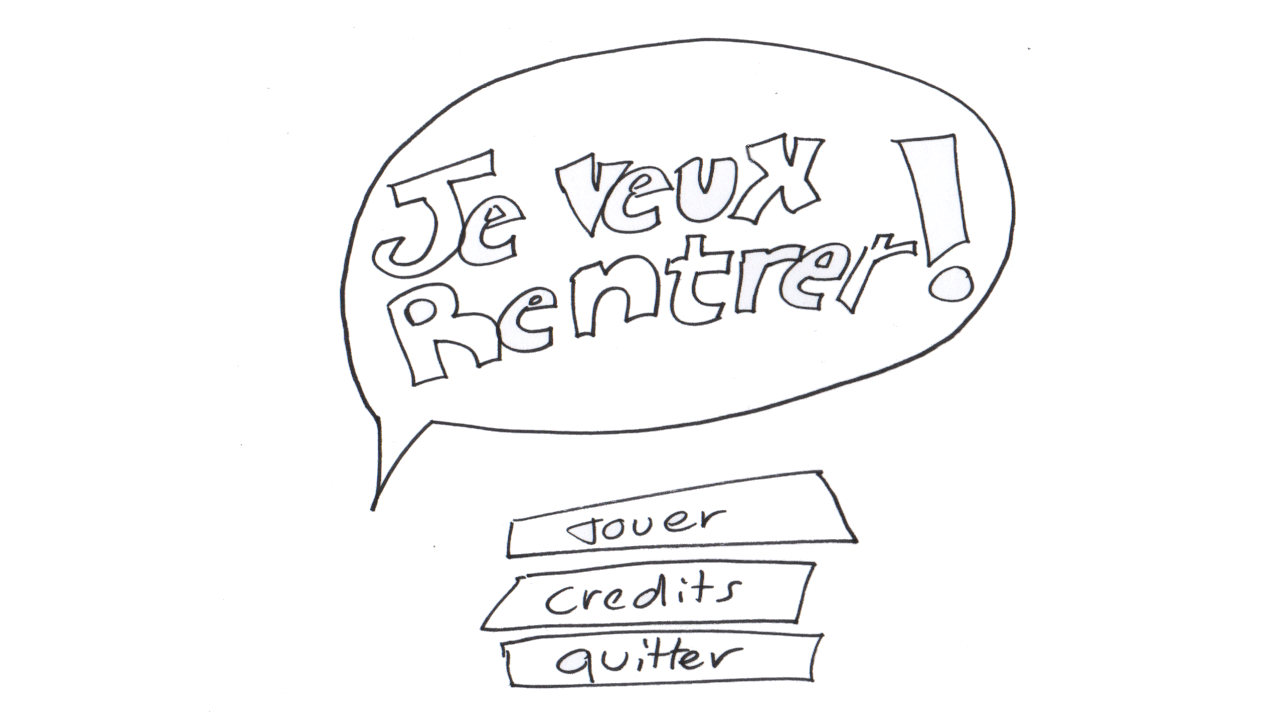 Je veux
Rentrer!
Jouer
credits
quitter